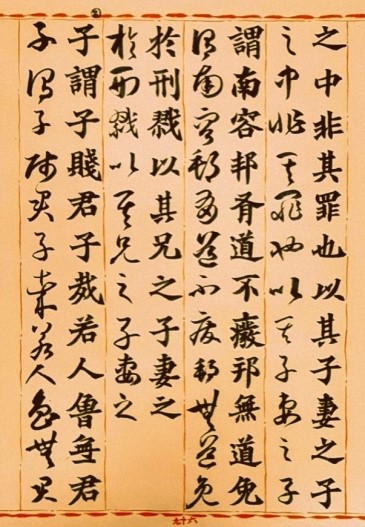 之中非其罪也以其子妻之子
之中非其罪也以其子妻之子
謂南容邦有道不廢邦無道免
謂南容邦有道不廢邦無道免
於刑戮以其兄之子妻之
於刑戮以其兄之子妻之
子謂子賤君子哉若人魯無君
子謂子賤君子哉若人魯無君